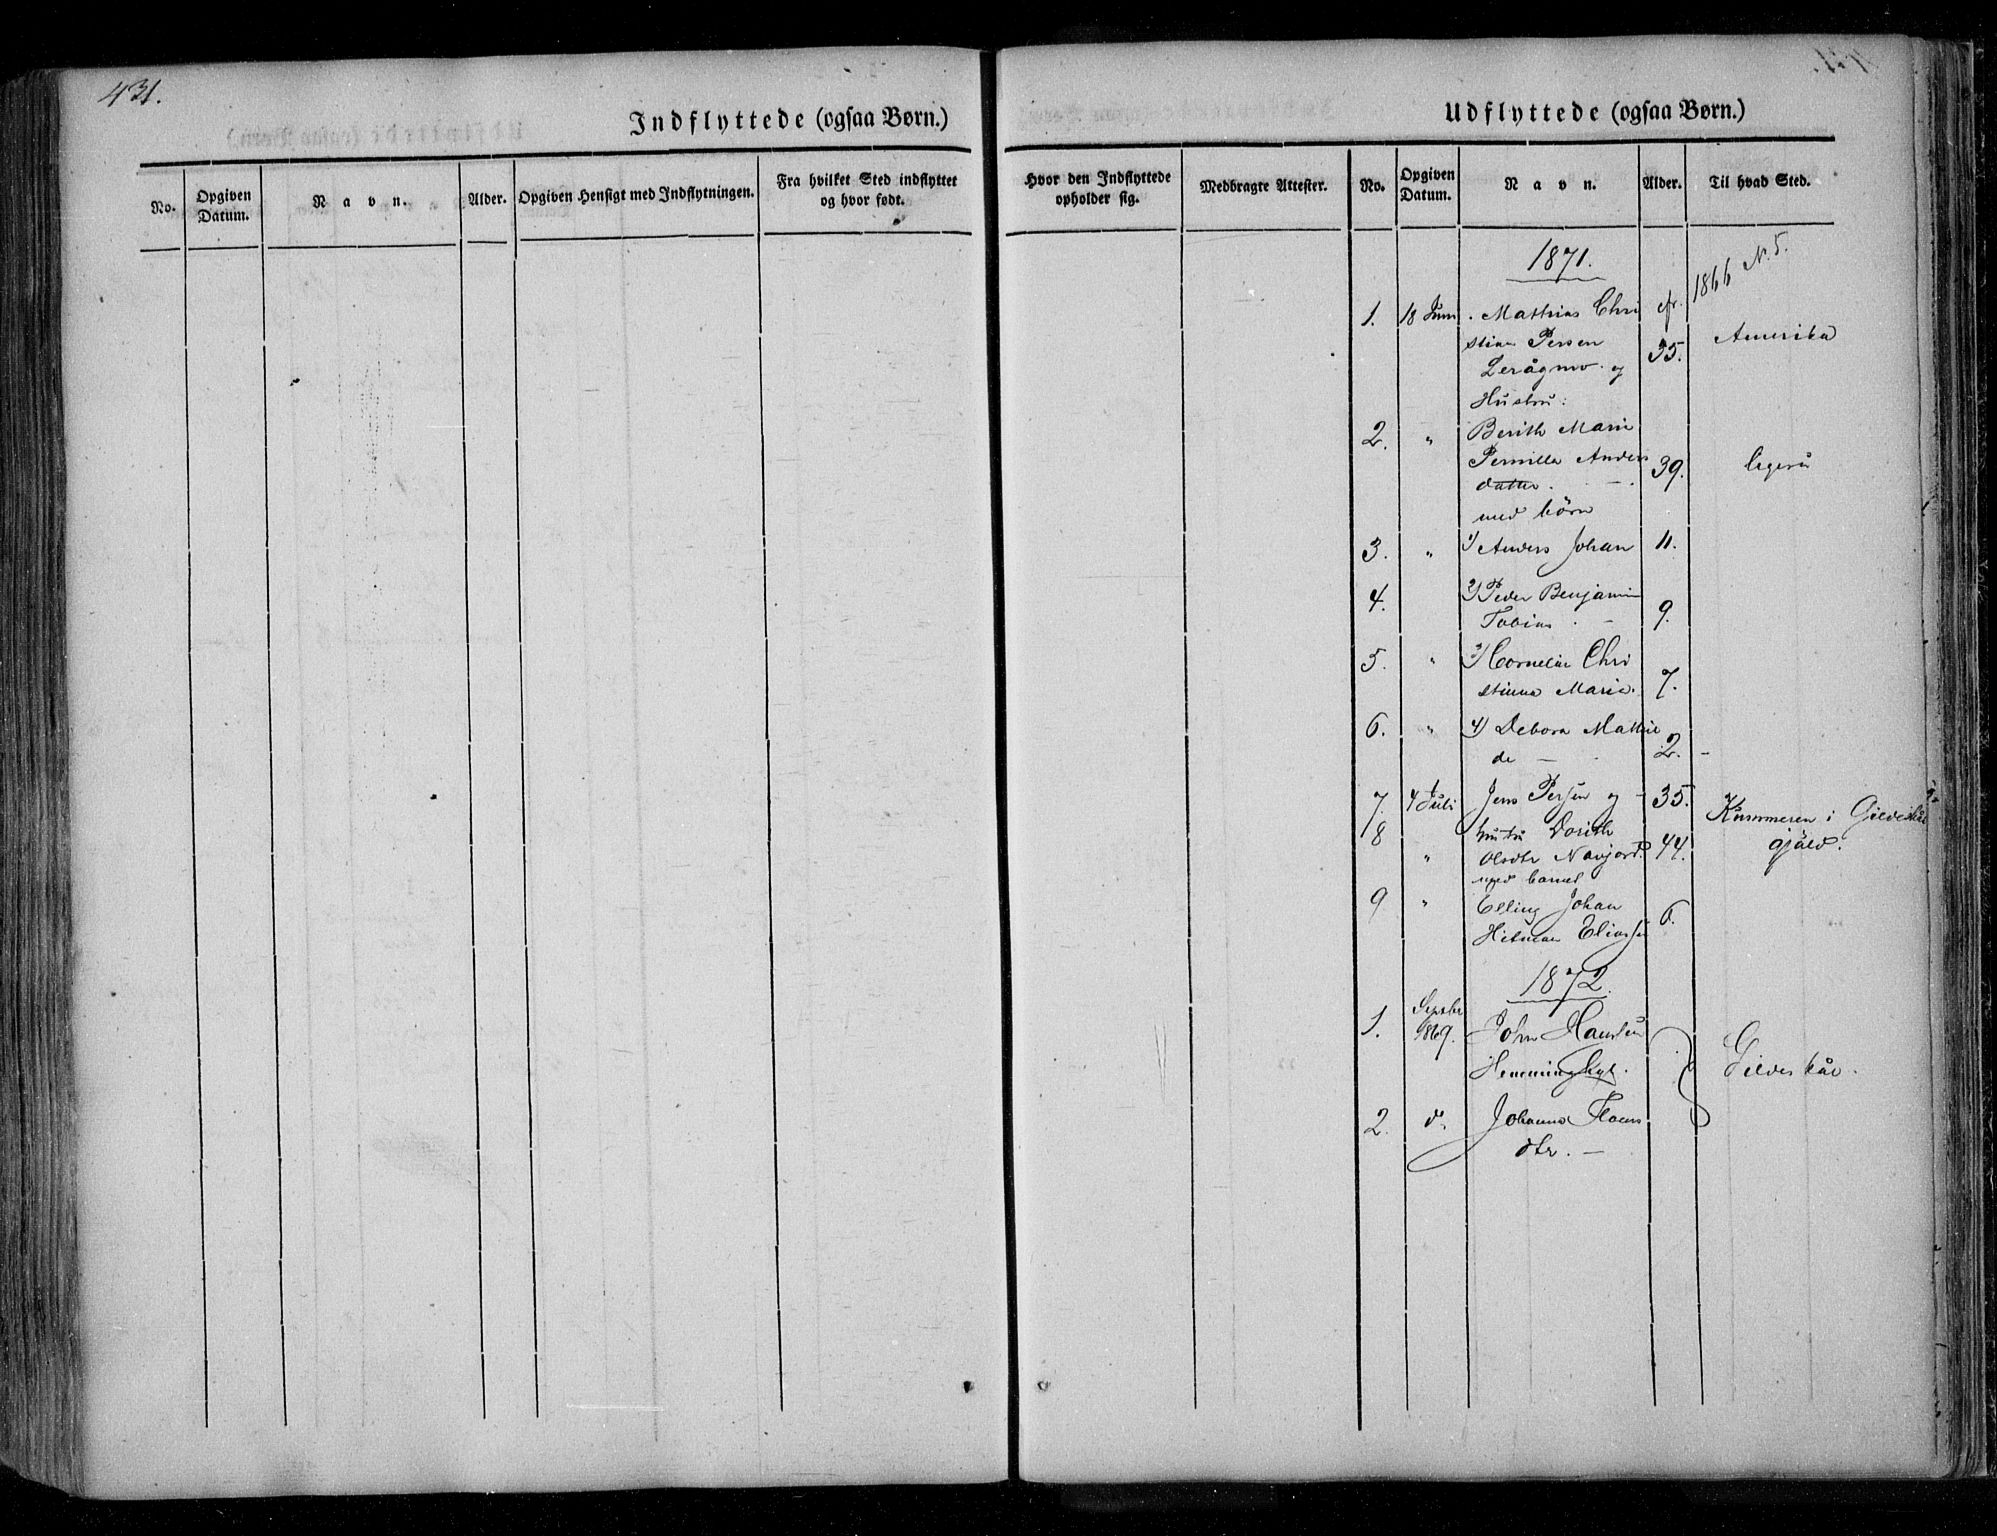 431.
Indflyttede (ogsaa Børn.)
No.
Opgiven Datum.
Navn.
Alder.
Opgiven Hensigt med Indflytningen.
Fra hvilket Sted indflyttet og hvor født.
Udflyttede (ogsaa Børn.)
Hvor den Indflyttede opholder sig.
Medbragte Attester.
No.
Opgiven Datum.
Navn.
Alder.
Til hvad Sted.
1871.
1866 N. 5.
1. 18 Juni Mathias Chri cfr.
stian Persen 35. Amerika
og
Hustru:
2. " Berith Marie
Pernilla Anders 39. ligeså
datter.
med börn
3. " 1) Anders Johan 11.
4. 2) Peder Benjamin
Tobias 9.
5. " 3) Cornelia Chri
stinna Marie. 7.
6. " 4) Debora Mathil
de 2.
7. 4 Juli Jens Persen og 35. i Gildeskål
8 hustru Dorith gjæld.
" Olsdtr Navjord. 44.
med barnet
9 " Elling Johan 6.
Hitman Eliassen
1872.
1. Septbr
1869. John Hansen
Gildeskål.
2. d. Johanna Hans
dtr.